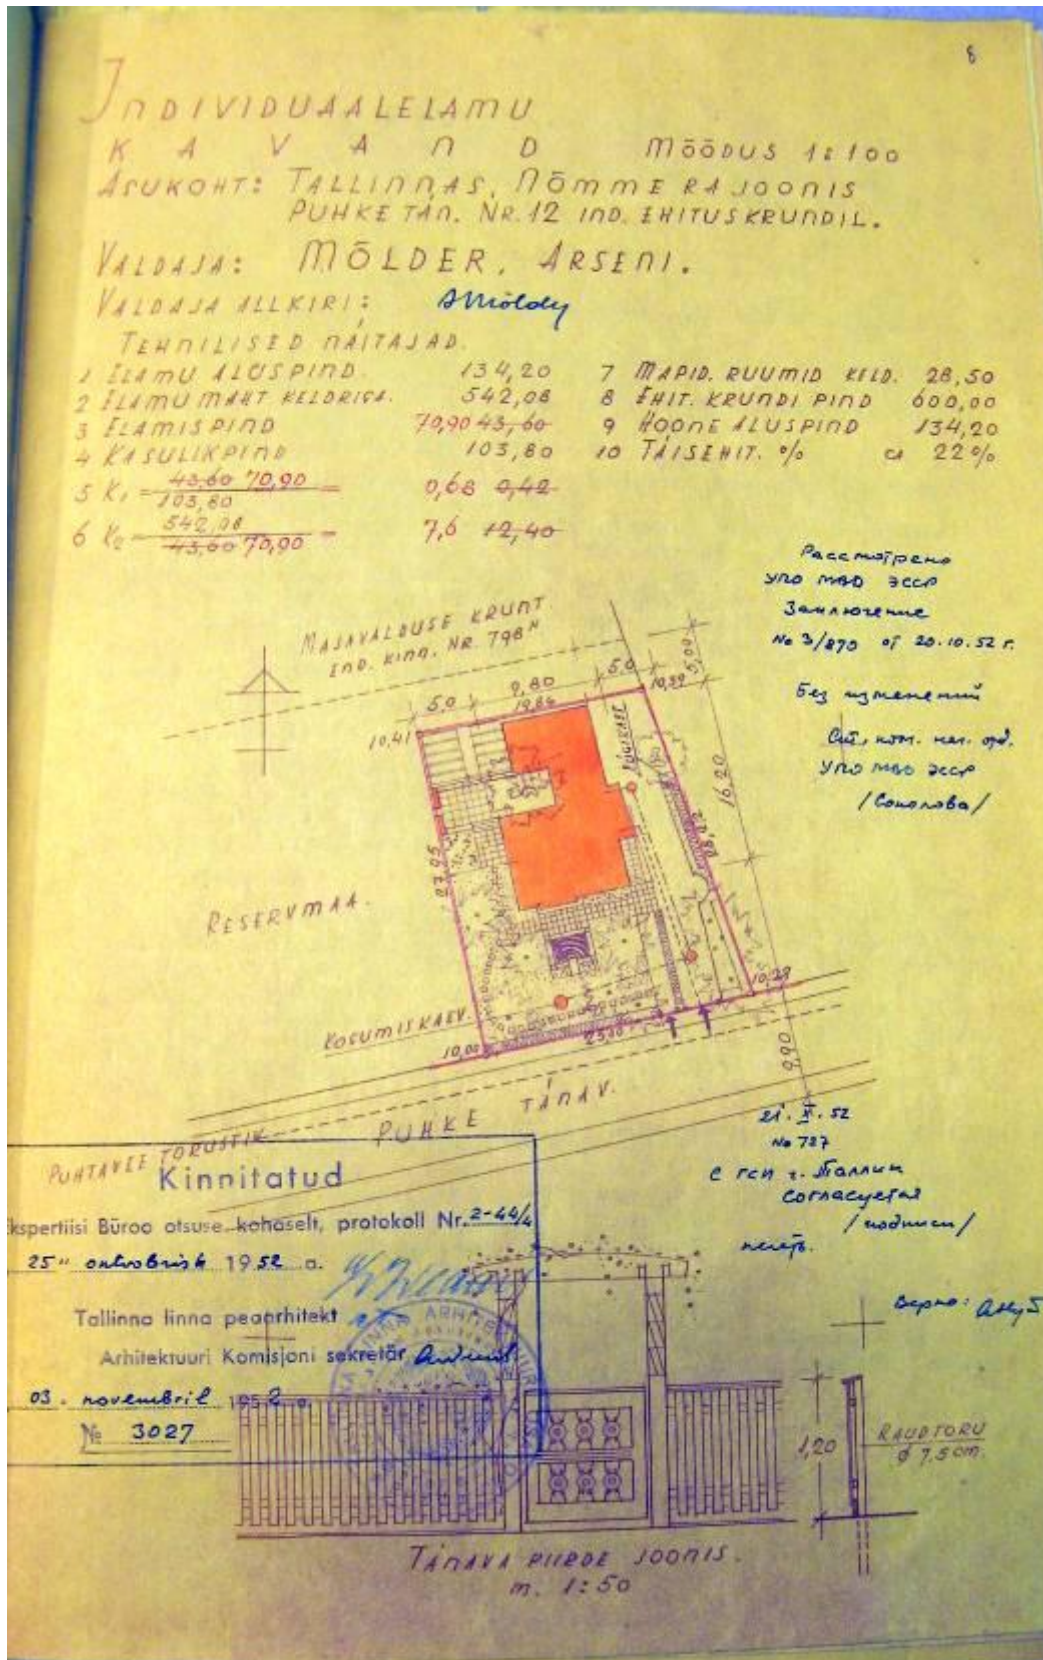 8
INDIVIDUAALELAMU
KAVAND MÕÕDUS 1:100
ASUKOHT: TALLINNAS, NÕMME RAJOONIS
PUHKE TÄN. NR.12 IND. EHITUSKRUNDIL.
VALDAJA: MÕLDER, ARSENI.
VALDAJA ALLKIRI:
TEHNILISED NÄITAJAD.
1 ELAMU ALUSPIND 134,20
2 ELAMU MAHT KELDRIGA. 542,08
3 ELAMISPIND 70,90 43,60
4 KASULIKPIND 103,80
5 K1 = 43,60 70,90 / 103,80 = 0,68 0,42
6 K2 = 542,08 / 43,60 70,90 = 7,6 12,40
7 MAPID. RUUMID KELD. 28,50
8 EHIT. KRUNDI PIND 600,00
9 HOONE ALUSPIND 134,20
10 TÄISEHIT. % ca 22%
Рассмотрено
УПО МВД ЭССР
Заключение
No 3/870 от 20.10.52 г.
Без изменений
УПО МВД ЭССР
/Соколова/
MAJAVALDUSE KRUNT
IND. KINN. NR. 798
5,0 9,80 5,0 5,00
19,84 10,39
10,41
16,20
27,05
28,42
RESERVMAA.
KOGUMISKAEV.
10,00 25,00 10,29
9,90
PUHKE TÄNAV.
PUHTAVEE TORUSTIK
21. X. 52
No 727
с ГСИ г. Таллин
согласуется
/подписи/
печать.
Верно:
Kinnitatud
kspertiisi Büroo otsuse kohaselt, protokoll Nr. 2-44/4
25" oktoobrisk 1952 a.
Tallinna linna peaarhitekt
Arhitektuuri Komisjoni sekretär
03. novembril 1952 a.
No 3027
1,20
RAUDTORU
ø 7,5 cm.
TÄNAVA PIIRDE JOONIS.
m. 1:50